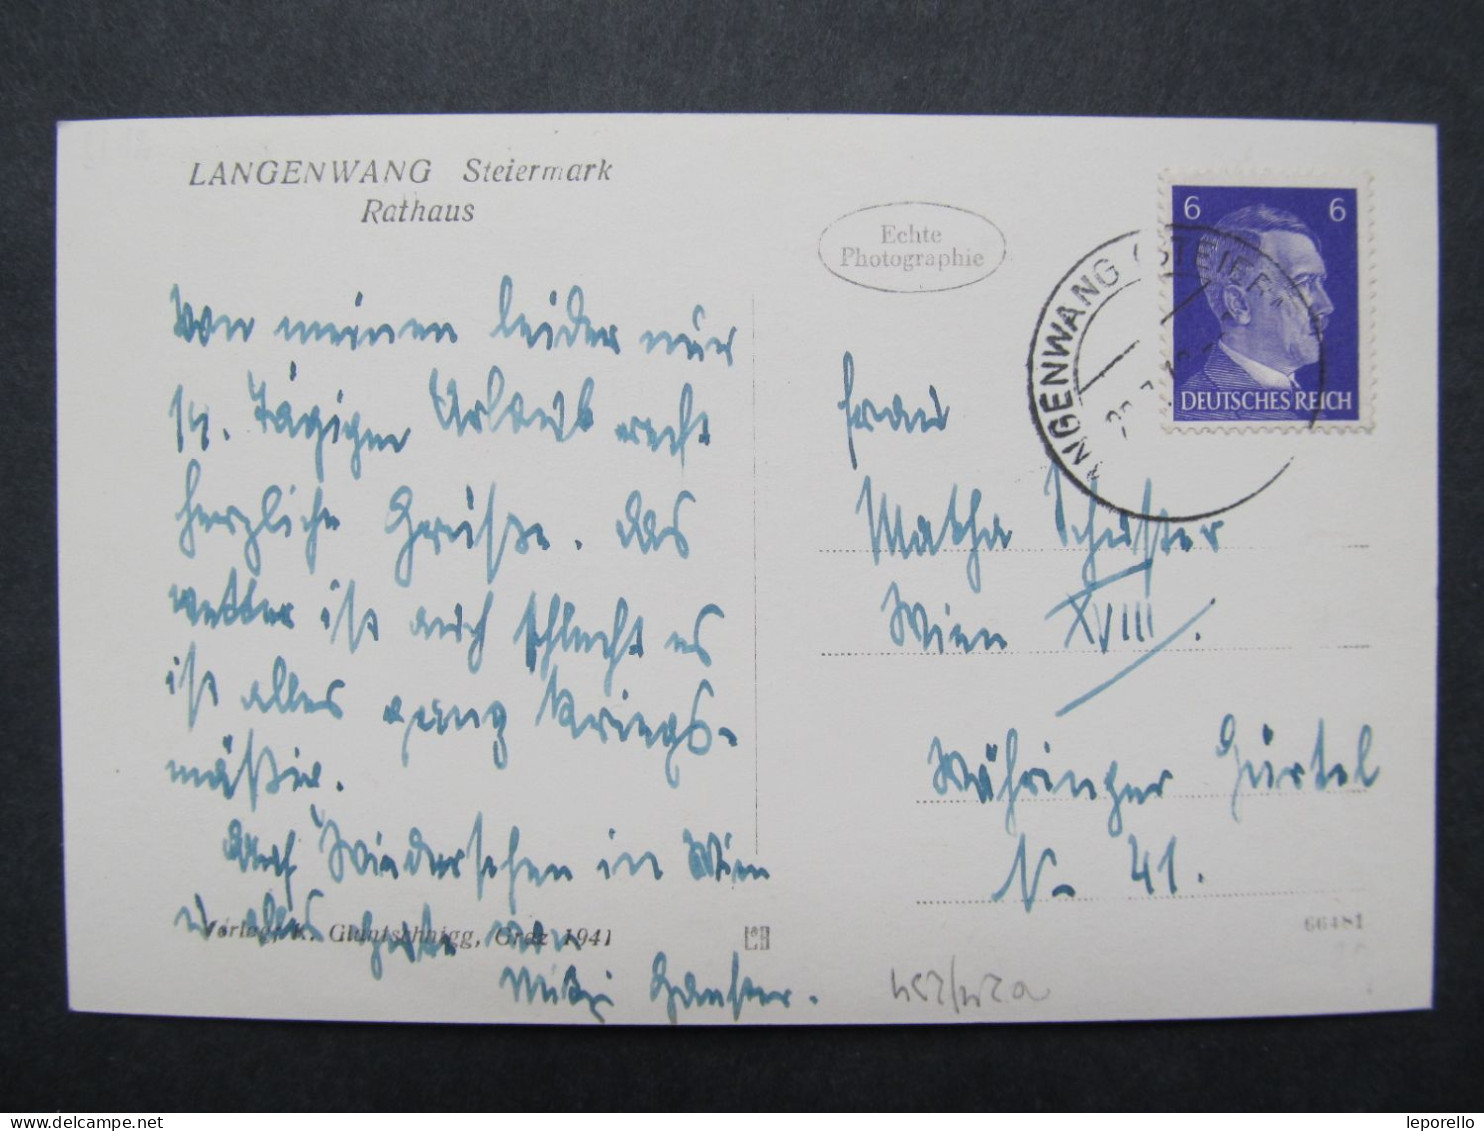 LANGENWANG Steiermark
Rathaus
Echte
Photographie
6 6
DEUTSCHES REICH
NGENWANG (STEIERM
Von meinen leider nur
14. tägigen Urlaub recht
herzliche Grüße. Das
wetter ist auch schlecht es
ist alles ganz Kriegs-
mäßig.
Auf Wiedersehen in Wien
u. alles gute von
Mitzi
Frau
Matha Schuster
Wien XVIII.
Währinger Gürtel
N- 41.
Verlag K. Glantschnigg, Graz 1941
66481
delcampe.net
leporello